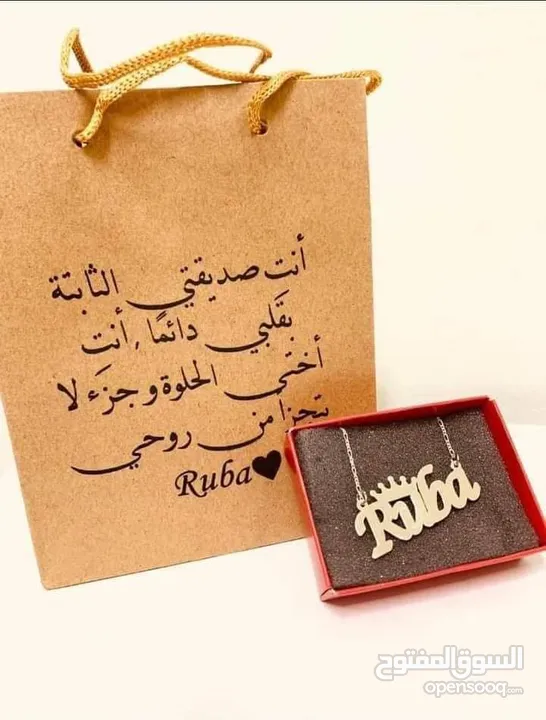 أنت صديقتي الثابتة
بقَلبي دائمًا, أنتَ
أختي الحلوة و جزء لا
يتجزا من روحي
Ruba♥
Ruba
السوق المفتوح
opensooq.com